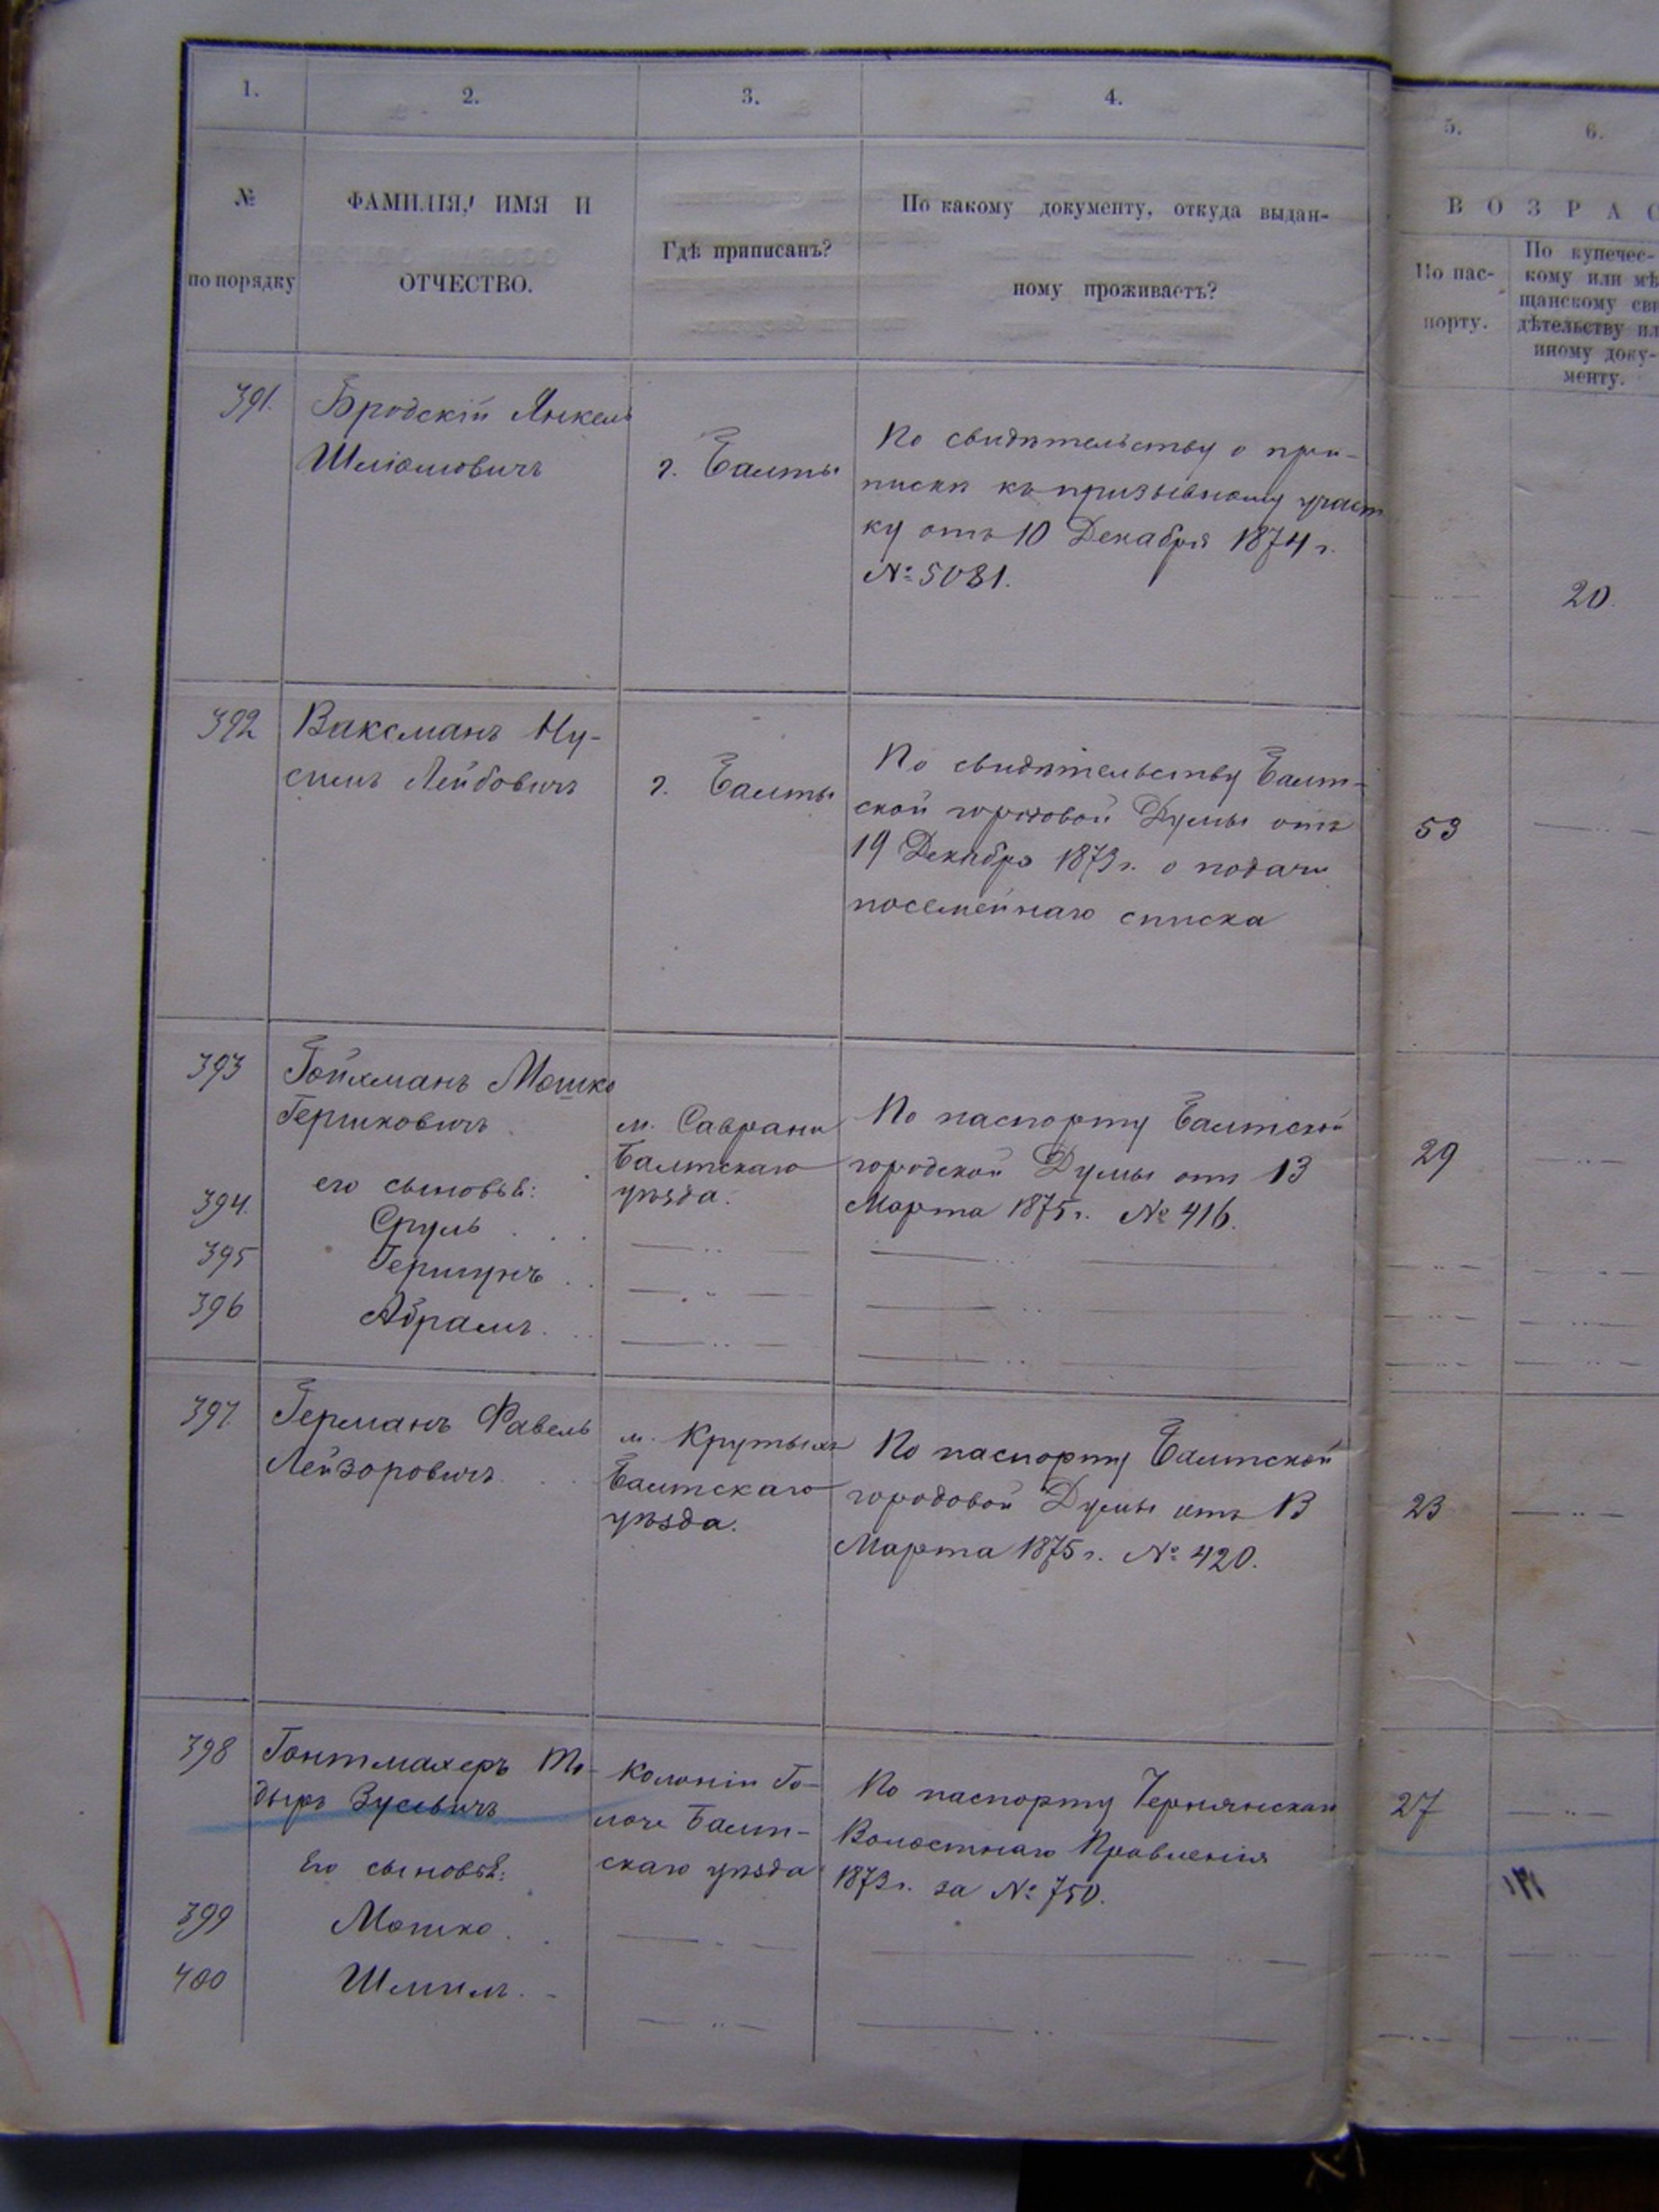 1. 2. 3. 4. 5. 6.
№ по порядку
ФАМИЛІЯ, ИМЯ И
ОТЧЕСТВО.
Гдѣ приписанъ?
По какому документу, откуда выдан-
ному проживаетъ?
ВОЗРАС
По пас-
порту.
По купечес-
кому или мѣ
щанскому сви
дѣтельству ил
иному доку-
менту.
391. Бродскій Янкель
Шлiомовичъ
г. Балты
По свидѣтельству о при-
пискѣ къ призывному участ
ку отъ 10 Декабря 1874 г.
№ 5081.
20.
392 Ваксманъ Ну-
симъ Лейбовичъ
г. Балты
По свидѣтельству Балт-
ской городовой Думы отъ
19 Декабря 1873 г. о подачи
посемейнаго списка
53
393 Гойхманъ Мошко
Гершковичъ.
м. Саврани
Балтскаго
уѣзда.
По паспорту Балтской
городской Думы отъ 13
Марта 1875 г. № 416.
29
его сыновья:
394. Сруль
395 Гершунъ
396 Абрамъ.
397. Германъ Фавель
Лейзоровичъ.
м. Крутыхъ
Балтскаго
уѣзда.
По паспорту Балтской
городовой Думы отъ 13
Марта 1875 г. № 420.
23
398 Гонтмахеръ
Зусевичъ
Колоніи
Балт-
скаго уѣзда
По паспорту
Волостнаго Правленія
1873 г. за № 750.
27
Его сыновья:
399 Мошко.
400 Шмилъ.